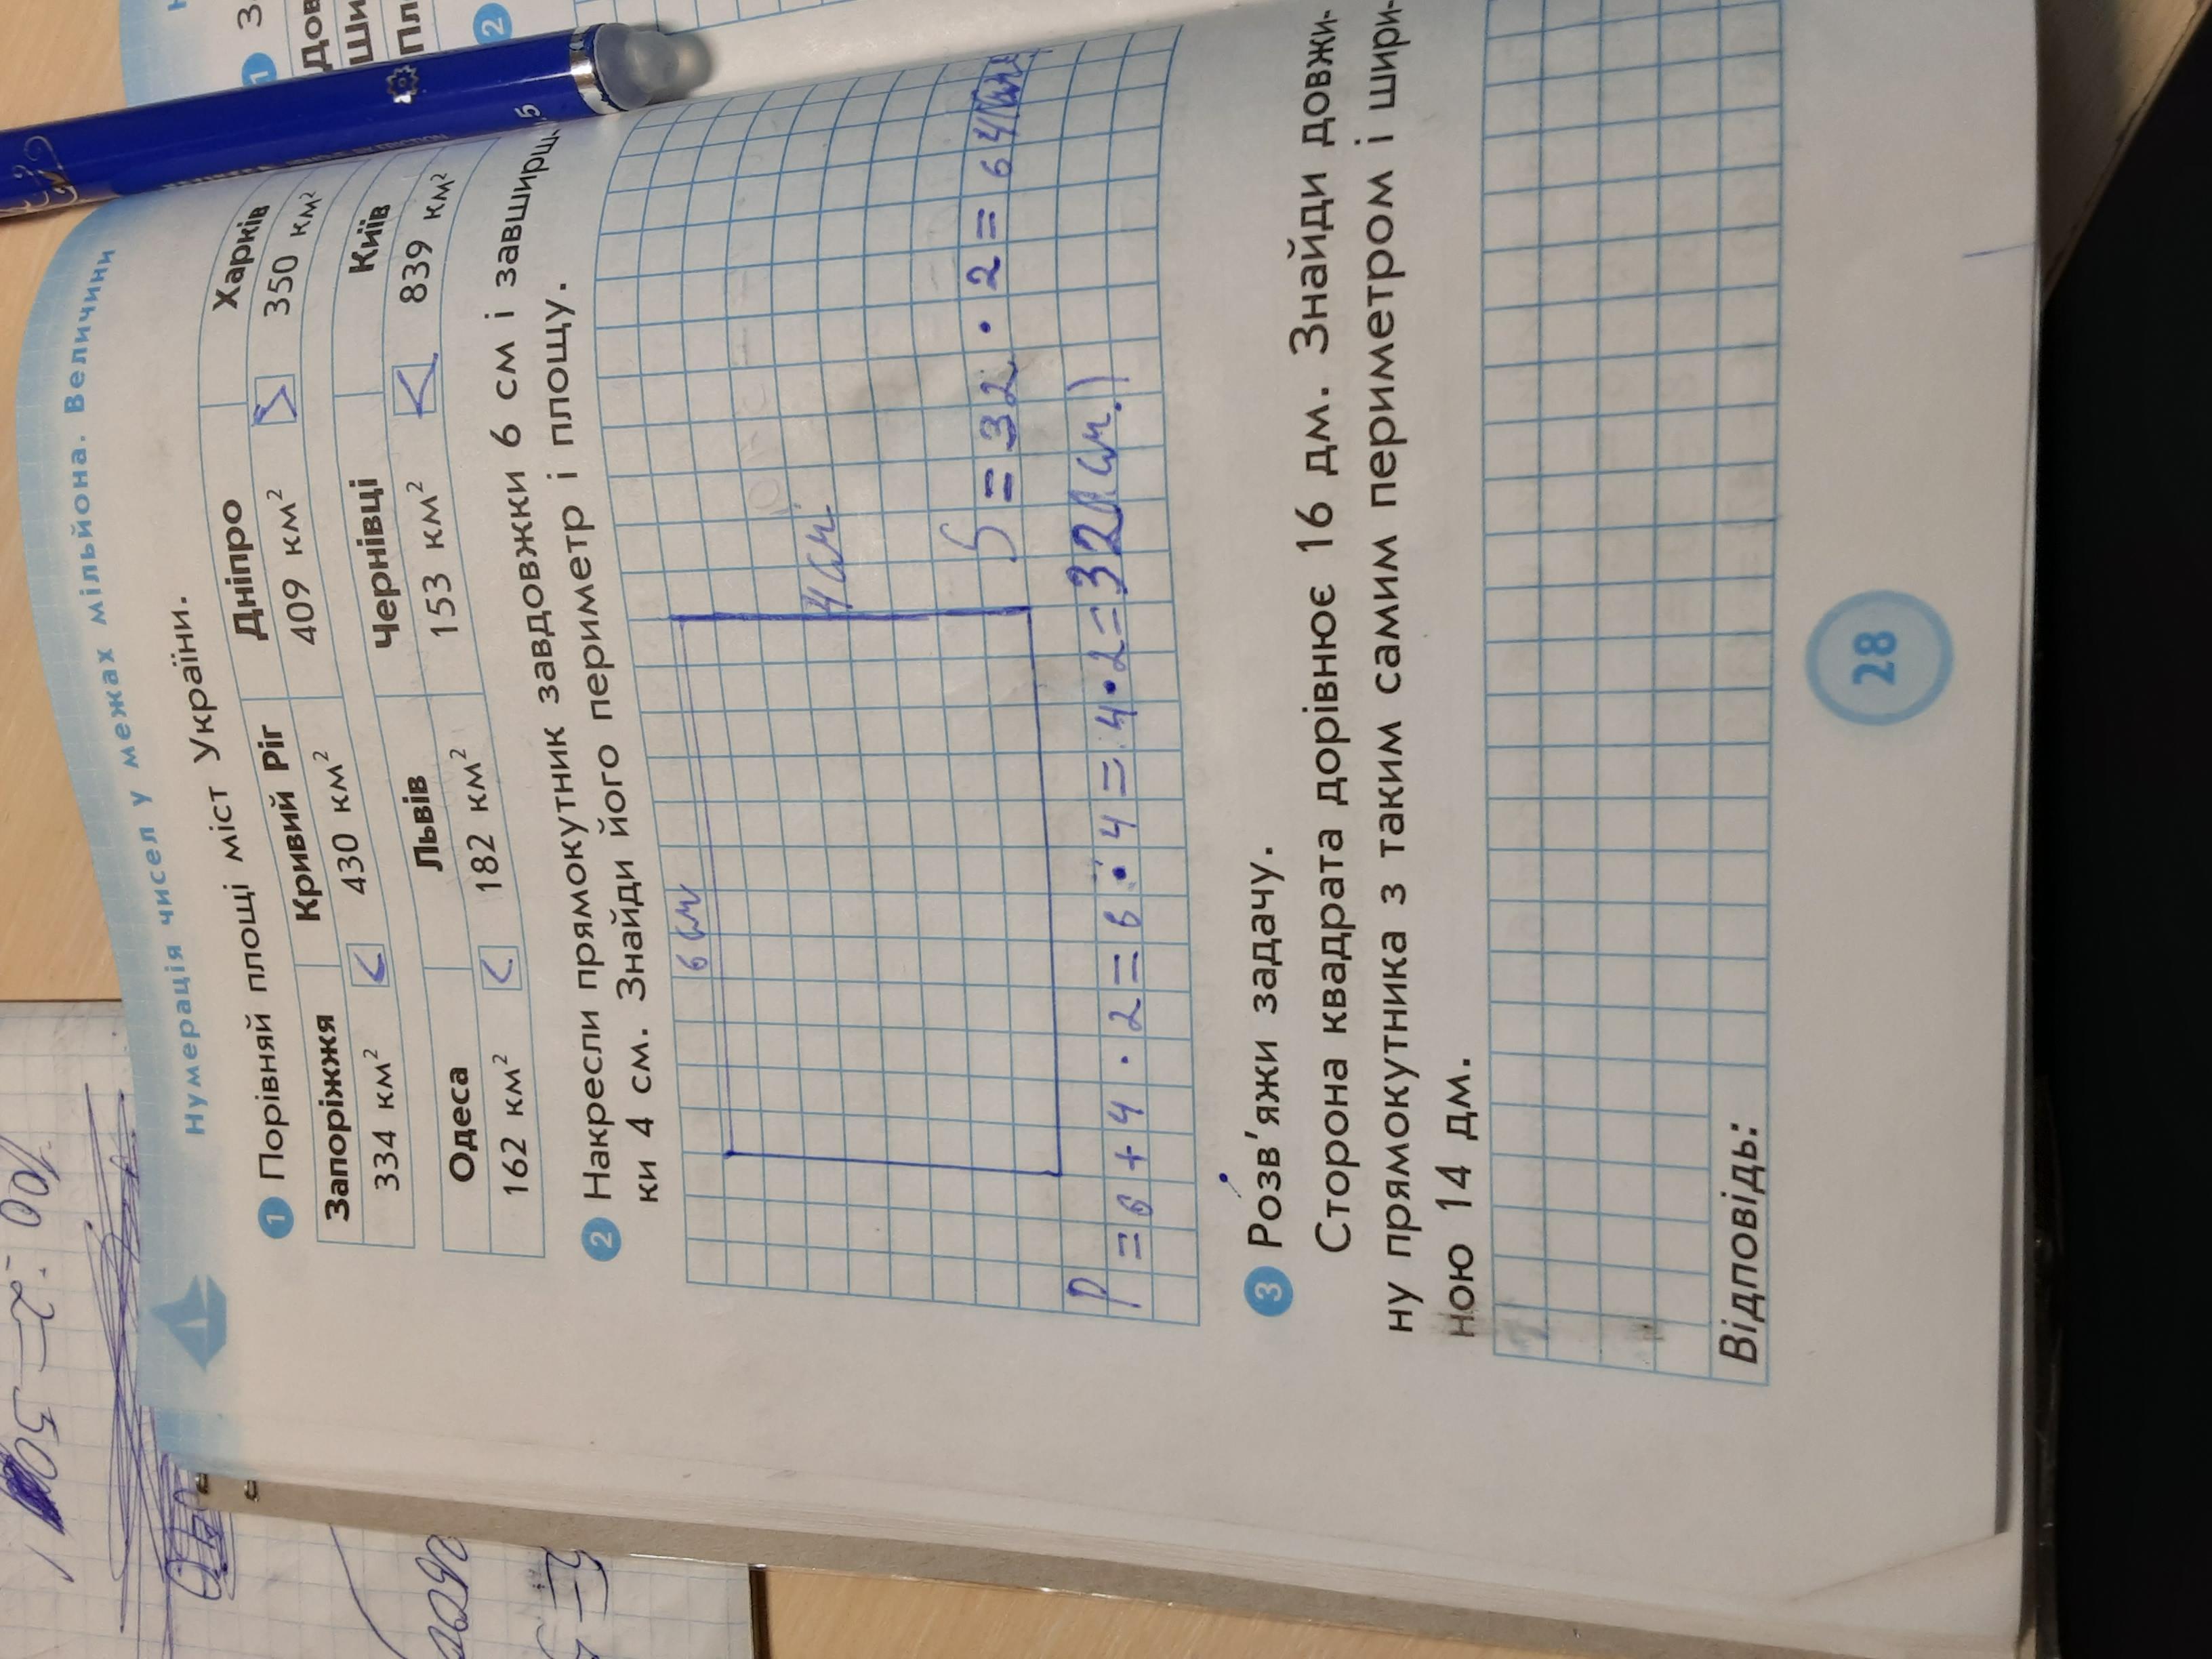 Нумерація чисел у межах мільйона. Величини
1 Порівняй площі міст України.
Запоріжжя Кривий Ріг Дніпро Харків
334 км² < 430 км² 409 км² > 350 км²
Одеса Львів Чернівці Київ
162 км² < 182 км² 153 км² < 839 км²
2 Накресли прямокутник завдовжки 6 см і завширш-
ки 4 см. Знайди його периметр і площу.
6 см
4 см
S = 32 · 2 = 64
P = 6 + 4 · 2 = 6 · 4 = 4 · 2 = 32 (см.)
3 Розв'яжи задачу.
Сторона квадрата дорівнює 16 дм. Знайди довжи-
ну прямокутника з таким самим периметром і шири-
ною 14 дм.
Відповідь:
28
1 З
Дов
Ши
Пл
2
100 : 2 = 50